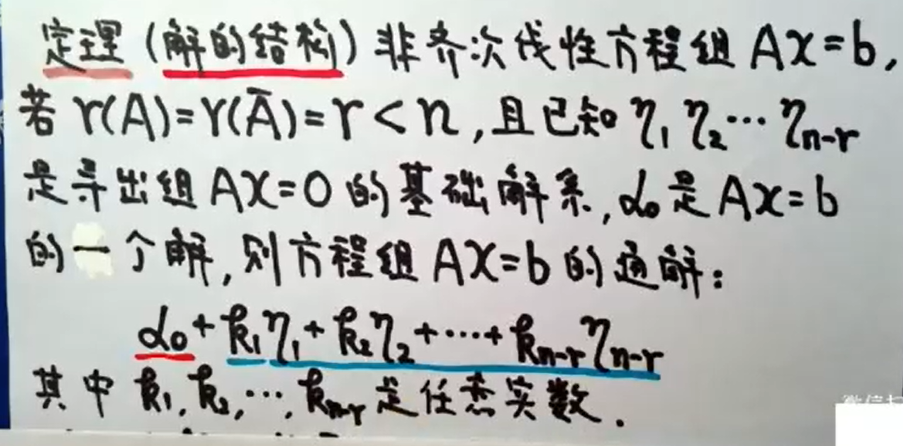 定理(解的结构)非齐次线性方程组 AX=b,
若 r(A)=r(Ā)=r<n,且已知 η₁ η₂⋯ηₙ₋ᵣ
是导出组 AX=0 的基础解系,α₀是 AX=b
的一个解,则方程组 AX=b 的通解:
α₀+k₁η₁+k₂η₂+⋯+kₙ₋ᵣηₙ₋ᵣ
其中 k₁,k₂,⋯,kₙ₋ᵣ是任意实数.